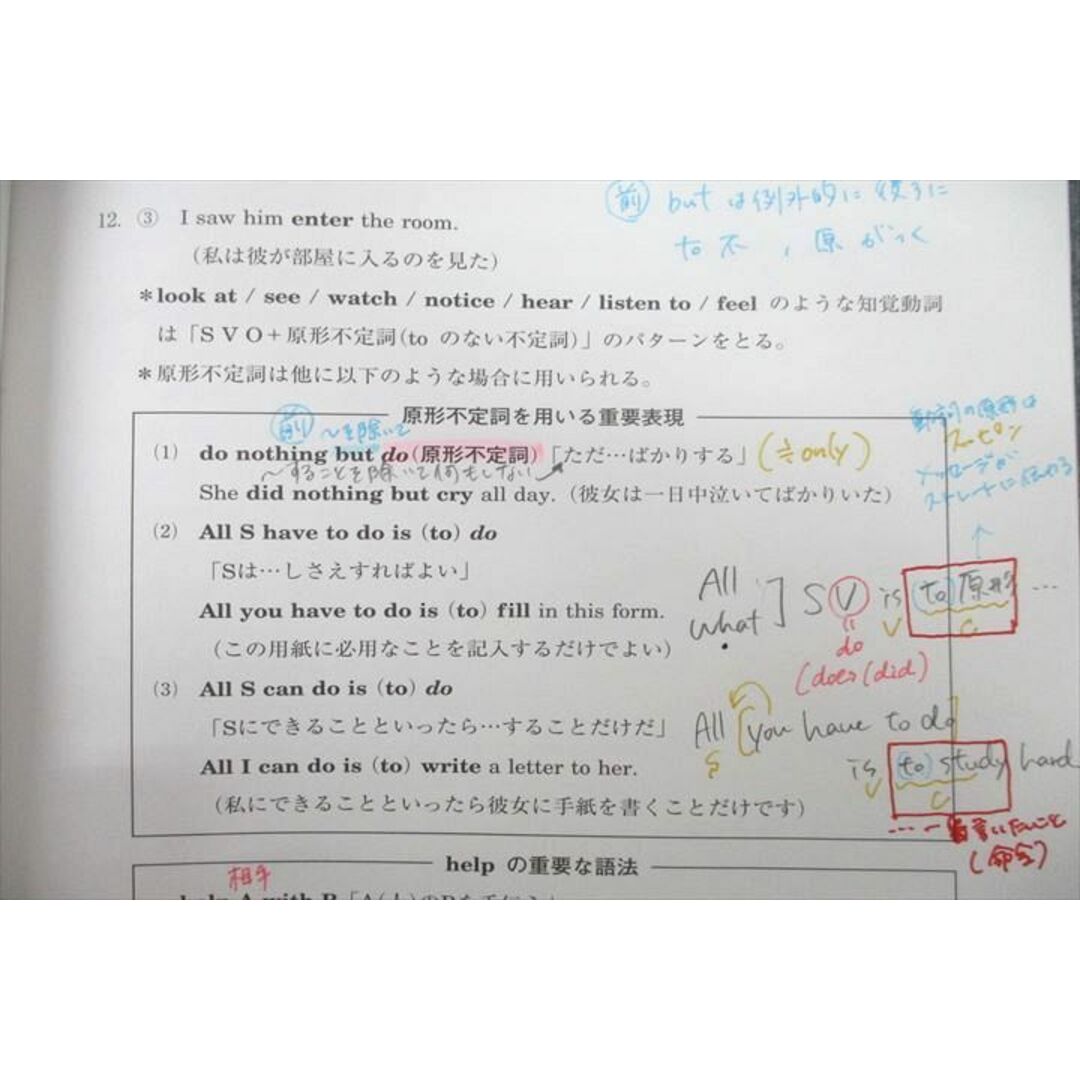 前 but は例外的に 後ろに
to 不 , 原 がつく
12. ③ I saw him enter the room.
(私は彼が部屋に入るのを見た)
*look at / see / watch / notice / hear / listen to / feel のような知覚動詞
は「S V O+原形不定詞(to のない不定詞)」のパターンをとる。
*原形不定詞は他に以下のような場合に用いられる。
原形不定詞を用いる重要表現
前 ～を除いて
(1) do nothing but do(原形不定詞)「ただ…ばかりする」(≒only)
～することを除いて何もしない
She did nothing but cry all day. (彼女は一日中泣いてばかりいた)
動詞の原形は
スッピン
メッセージが
ストレートに伝わる
(2) All S have to do is (to) do
「Sは…しさえすればよい」
All you have to do is (to) fill in this form.
(この用紙に必用なことを記入するだけでよい)
All
what ] S V is (to)原形 …
do V C
(does(did)
(3) All S can do is (to) do
「Sにできることといったら…することだけだ」
All I can do is (to) write a letter to her.
(私にできることといったら彼女に手紙を書くことだけです)
All you have to do
S
is (to) study hard
V C
… 一番言いたいこと
(命令)
help の重要な語法
相手
help A with B「A(人)のBを手伝う」